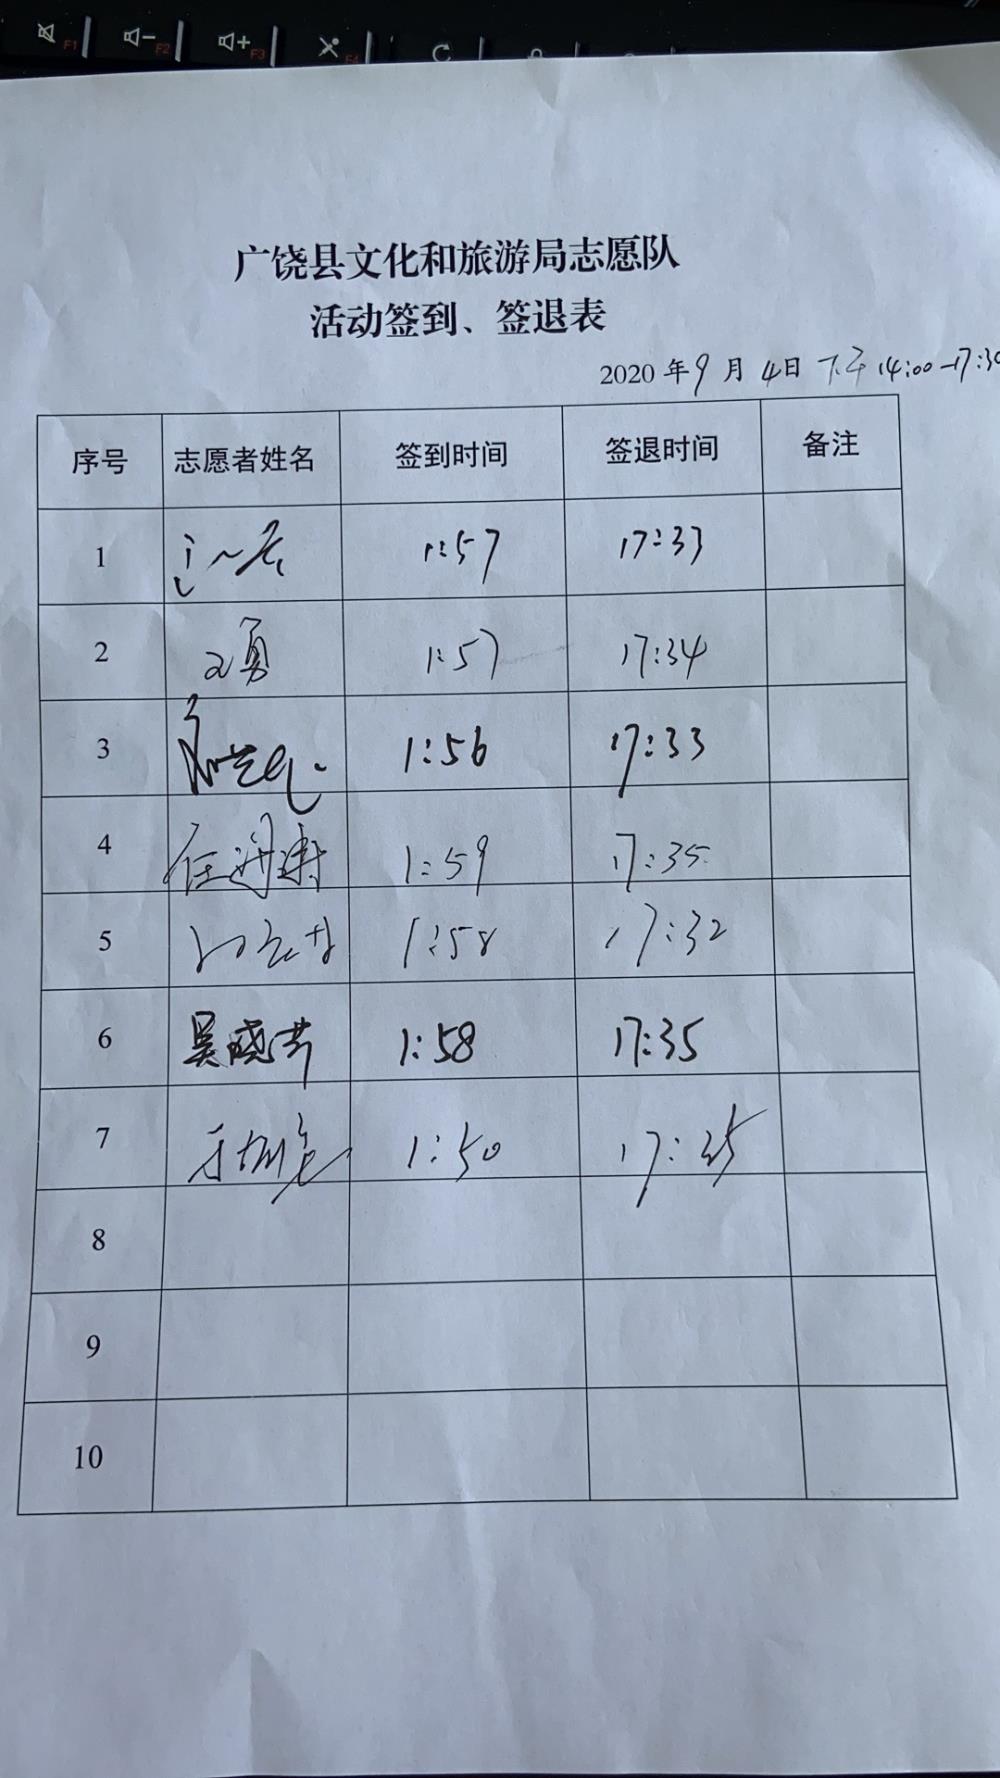 广饶县文化和旅游局志愿队
活动签到、签退表
2020年9月4日 下午14:00-17:30
序号 志愿者姓名 签到时间 签退时间 备注
1 1:57 17:33
2 1:57 17:34
3 1:56 17:33
4 1:59 17:35
5 1:58 17:32
6 吴晓 1:58 17:35
7 1:50 17:35
8
9
10
F1 F2 F3 F4